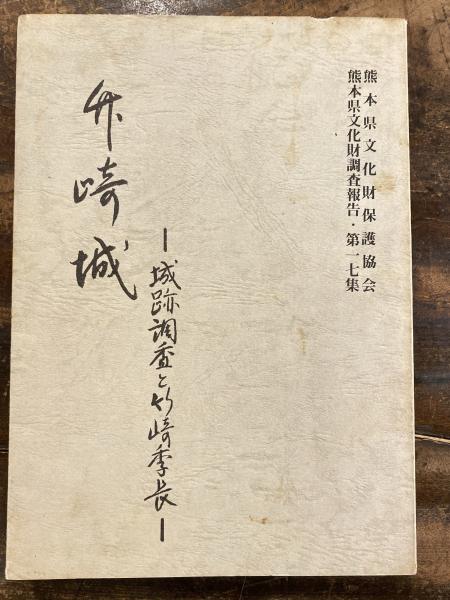 熊本県文化財保護協会
熊本県文化財調査報告・第一七集
竹崎城
ー城跡調査と竹崎季長ー